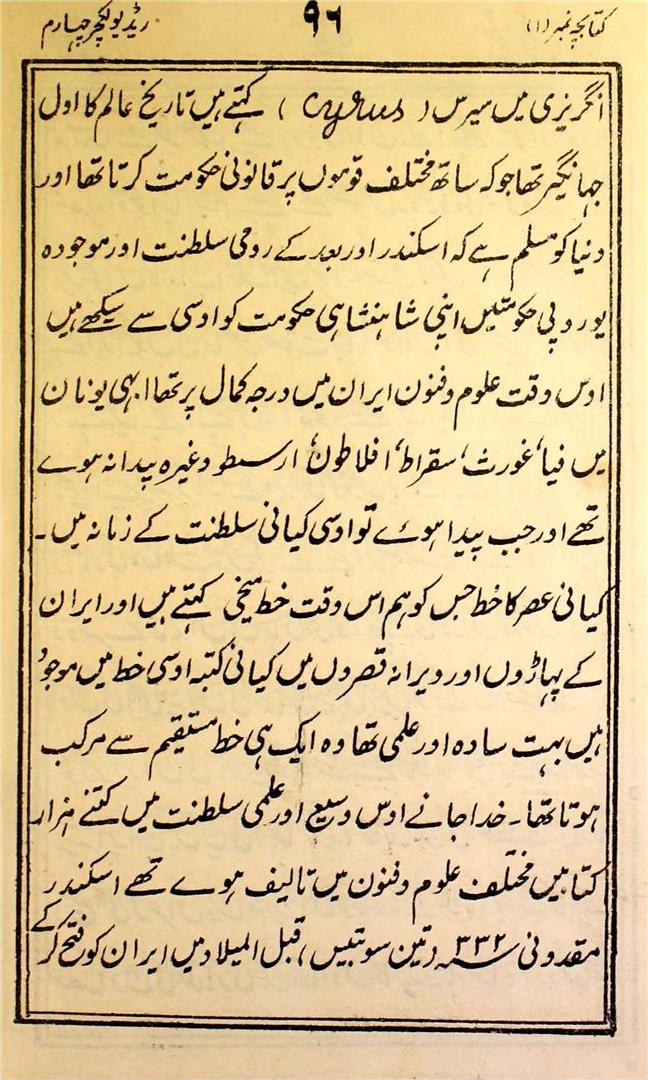 کتابچہ نمبر (۱)
۹۶
ریڈیو لکچر چہارم
انگریزی میں سیرس ( Cyrus ) کہتے ہیں تاریخ عالم کا اول
جہانگیر تھا جو کہ ساتھ مختلف قوموں پر قانونی حکومت کرتا تھا اور
دنیا کو مسلم ہے کہ اسکندر اور بعد کے رومی سلطنت اور موجودہ
یوروپی حکومتیں اپنی شاہنشاہی حکومت کو اوسی سے سیکھے ہیں
اوس وقت علوم و فنون ایران میں درجہ کمال پر تھا ابہی یونان
میں فیاغورث، سقراط، افلاطون، ارسطو وغیرہ پیدا نہ ہوے
تھے اور جب پیدا ہوئے تو اوسی کیانی سلطنت کے زمانہ میں۔
کیانی عصر کا خط جس کو ہم اس وقت خط میخی کہتے ہیں اور ایران
کے پہاڑوں اور ویرانہ قصروں میں کیانی کتبہ اوسی خط میں موجود
ہیں بہت سادہ اور علمی تھا وہ ایک ہی خط مستقیم سے مرکب
ہوتا تھا۔ خدا جانے اوس وسیع اور علمی سلطنت میں کتنے ہزار
کتابیں مختلف علوم و فنون میں تالیف ہوے تھے اسکندر
مقدونی ۳۳۲؁ (تین سو تیس) قبل المیلاد میں ایران کو فتح کر کے